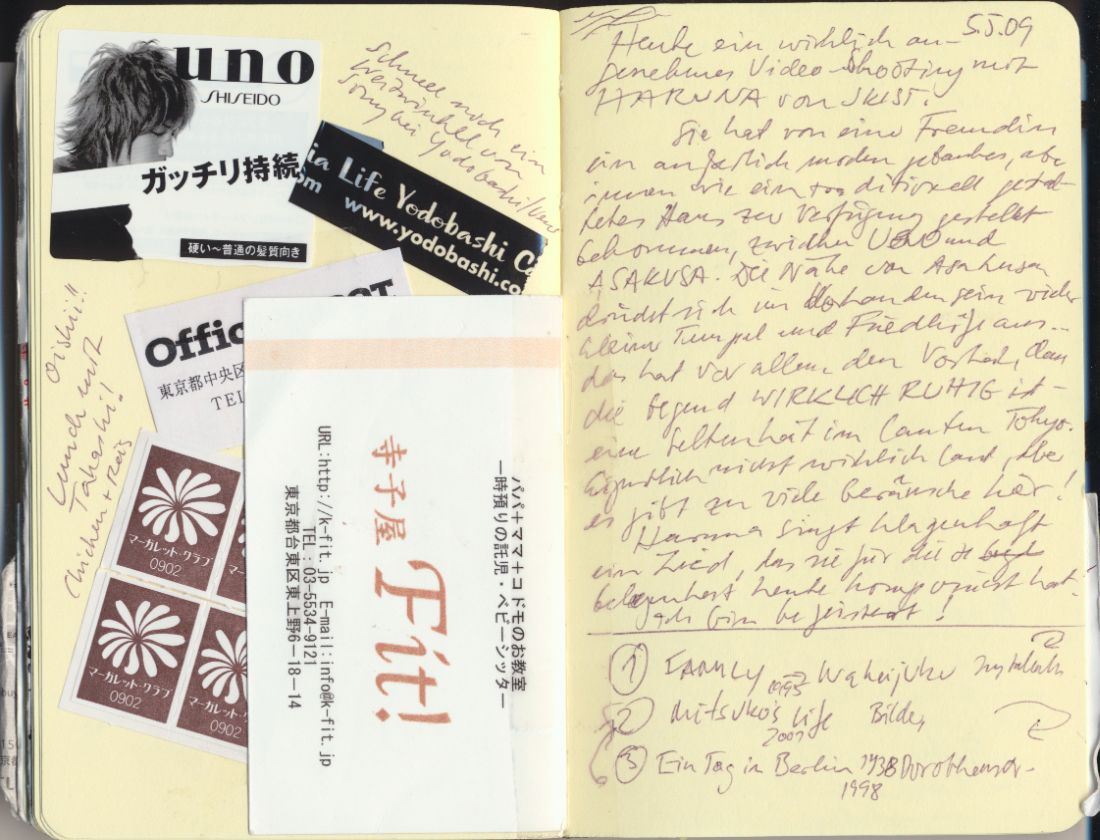 uno
SHISEIDO
ガッチリ持続
硬い～普通の髪質向き
Schnell noch ein
Weitwinkel von
Sony bei Yodobashi
ia Life Yodobashi Ca
om www.yodobashi.co
Offic
東京都中央区
TEL
Oishii!!
Lunch mit
Takashi!
Chicken + Reis
マーガレット・クラブ
0902
マーガレット・クラブ
0902
パパ＋ママ＋コドモのお教室
一時預りの託児・ベビーシッター
寺子屋 Fit!
URL:http://k-fit.jp E-mail:info@k-fit.jp
TEL：03-5534-9121
東京都台東区東上野6－18－14
5.5.09
Heute ein wirklich an-
genehmes Video-Shooting mit
HARUNA von SKIST.
Sie hat von eine Freundin
ein äußerlich modern gebautes, aber
innen wie ein traditionell gestal-
tetes Haus zur Verfügung gestellt
bekommen, zwischen UENO und
ASAKUSA. Die Nähe von Asakusa
drückt sich im Vorhandensein vieler
kleiner Tempel und Friedhöfe aus--
das hat vor allem den Vorteil, dass
die Gegend WIRKLICH RUHIG ist -
eine Seltenheit im lauten Tokyo.
Eigentlich nicht wirklich laut, aber
es gibt zu viele Geräusche hier!
Haruna singt
ein Lied, das sie für die
Gelegenheit heute komponiert hat.
Ich bin begeistert!
① FAMILY 1995
② Mitsuko's Life Bilder
2001
③ Ein Tag in Berlin 1938 Dorotheenstr.
1998